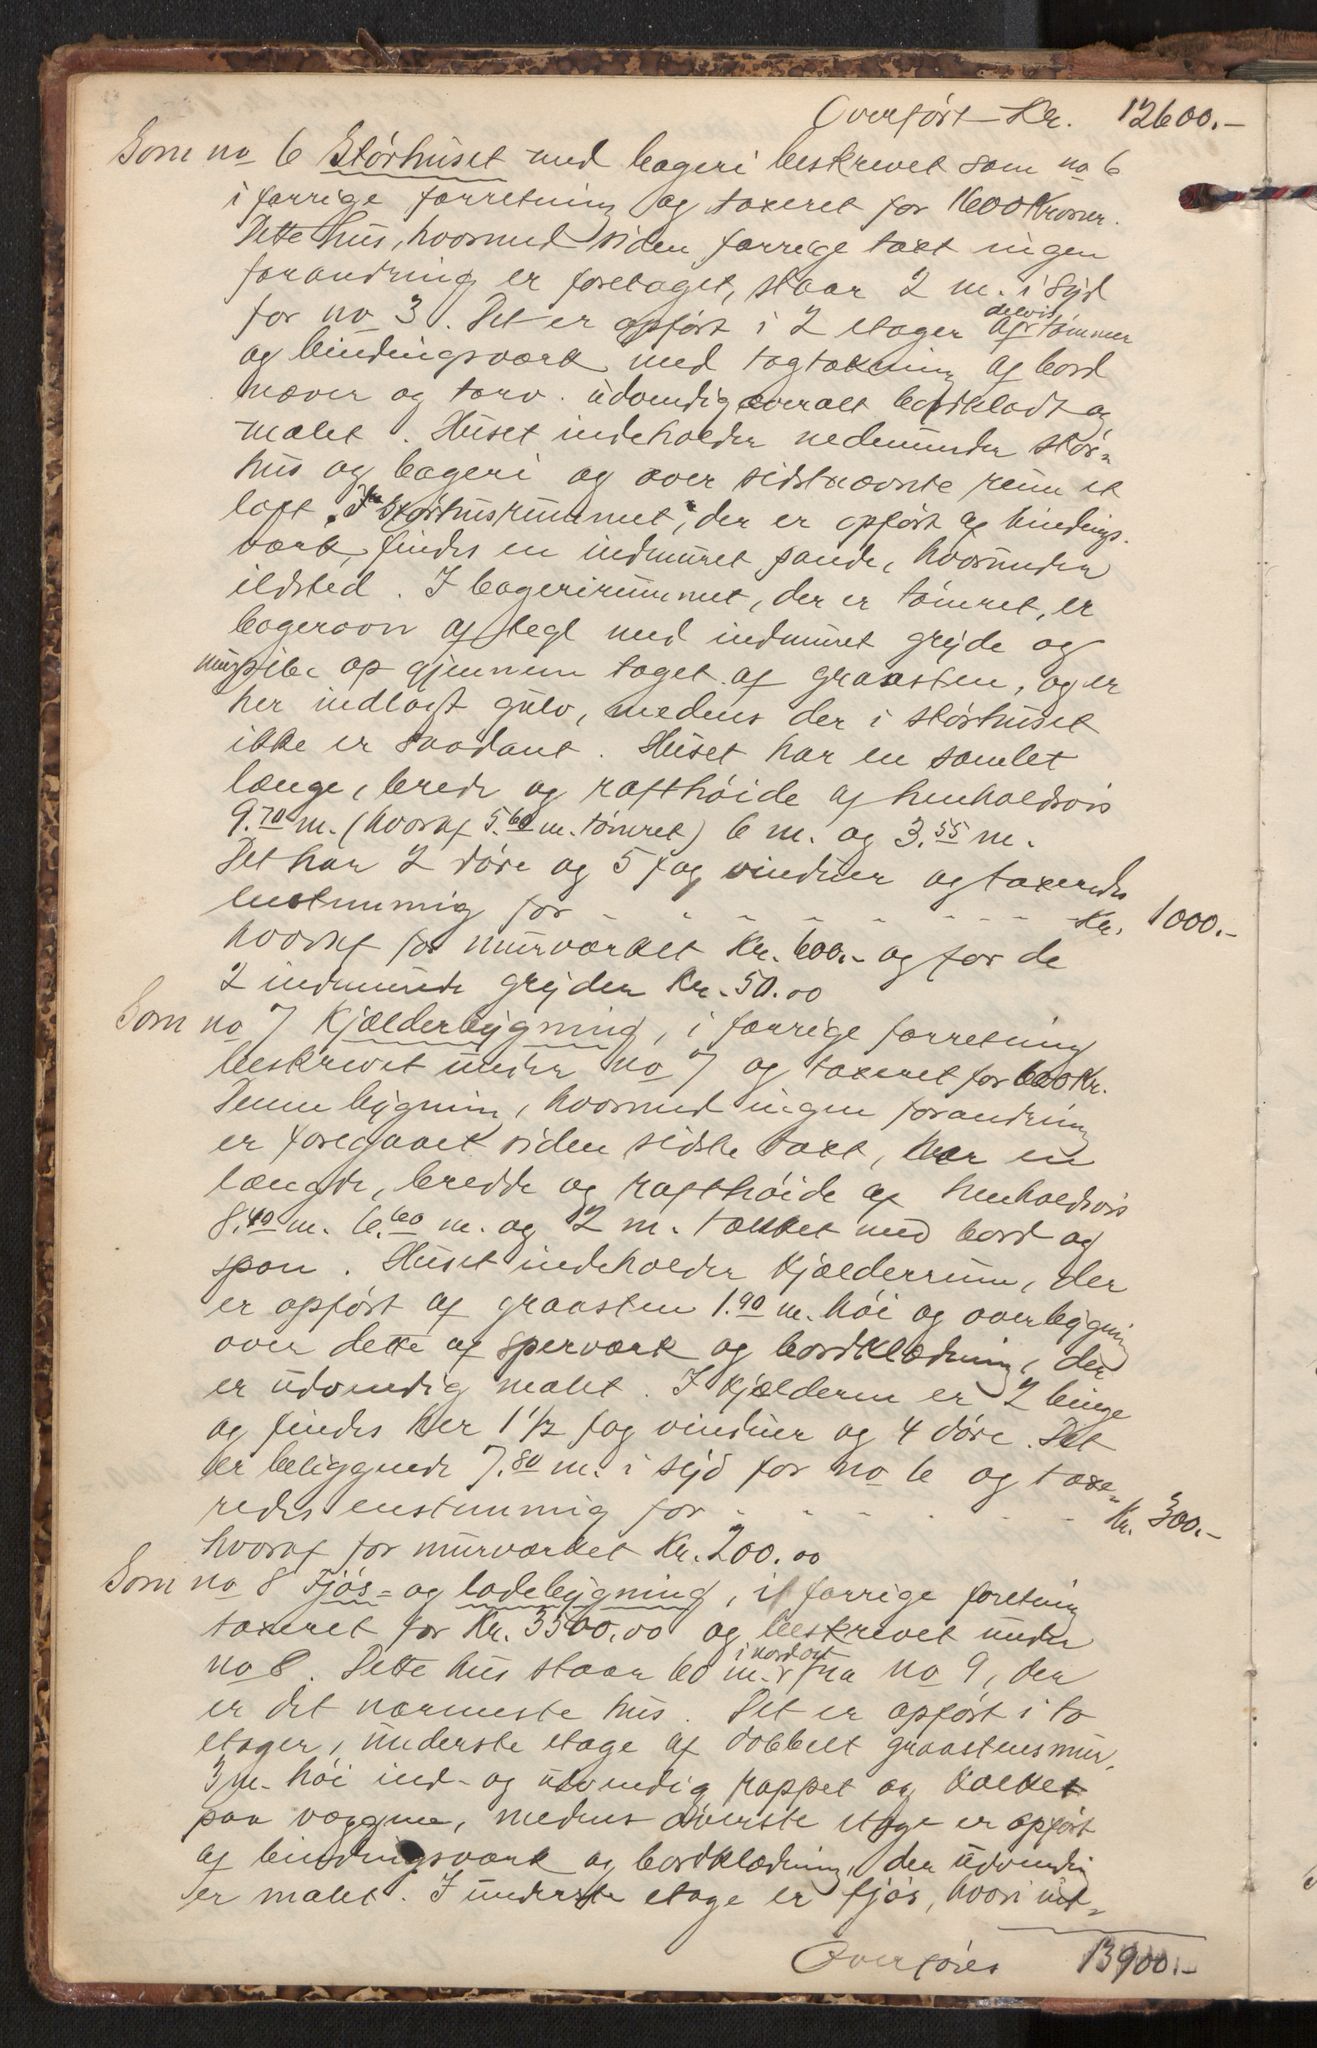 Overført Kr. 12600.-
Som no 6 Størhuset med bageri beskrevet som no 6
i forrige forretning og taxeret for 1600 Kroner.
Dette hus, hvormed siden forrige taxt ingen
forandring er foretaget, staar 2 m. i Syd
for no 3. Det er opført i 2 etager delvis af tømmer
og bindingsværk med tagtækning af bord
næver og torv. udvendig overalt bordklædt og
malet. Huset indeholder nedenunder stør-
hus og bageri og over sidstnævnte rum et
loft. I størhusrummet, der er opført af bindings-
værk, findes en indmuret pande, hvorunder
ildsted. I bagerirummet, der er tømret, er
bagerovn af tegl med indmuret gryde og
murpibe op gjennem taget af graasten, og er
her indlagt gulv, medens der i størhuset
ikke er saadant. Huset har en samlet
længe, brede og rafthøide af henholdsvis
9.70 m. (hvoraf 5.60 m. tømret) 6 m. og 3.55 m.
Det har 2 døre og 5 fag vinduer og taxeredes
enstemmig for - - - - - - - - - Kr. 1000.-
hvoraf for murværket Kr. 600.- og for de
2 indmurede gryder Kr. 50.00
Som no 7 Kjælderbygning, i forrige forretning
beskrevet under no 7 og taxeret for 600 Kr.
Denne bygning, hvormed ingen forandring
er foregaaet siden sidste taxt, har en
længde, bredde og rafthøide af henholdsvis
8.40 m. 6.60 m. og 2 m. tækket med bord og
spon. Huset indeholder Kjælderrum, der
er opført af graasten 1.90 m. høi og overbygning
over dette af sperværk og bordklædning, der
er udvendig malet. I Kjælderen er 2 binge
og findes her 1 1/2 fag vinduer og 4 døre. Det
er beliggende 7.80 m. i syd for no 6 og taxe-
redes enstemmig for - - - - - - - Kr. 300.-
hvoraf for murværket Kr. 200.00
Som no 8 Fjøs- og ladebygning, i forrige foretning
taxeret for Kr. 3500.00 og beskrevet under
no 8. Dette hus staar 60 m. i nordost fra no 9, der
er det nærmeste hus. Det er opført i to
etager, underste etage af dobbelt graastensmur,
3 m. høi ind- og udvendig rappet og kalket
paa væggene, medens øverste etage er opført
af bindingsværk og bordklædning, der udvendig
er malet. I underste etage er fjøs, hvori ut-
Overføres 13900.-